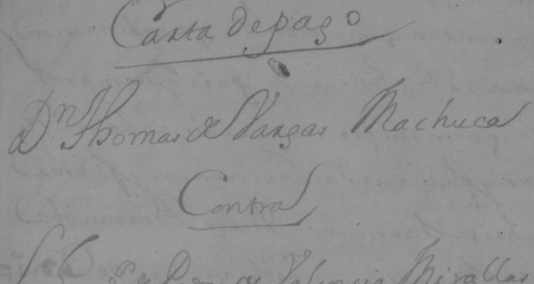 Carta de pago
Dn Thomas de Vargas Machuca
Contra
de Valencia Mirallas